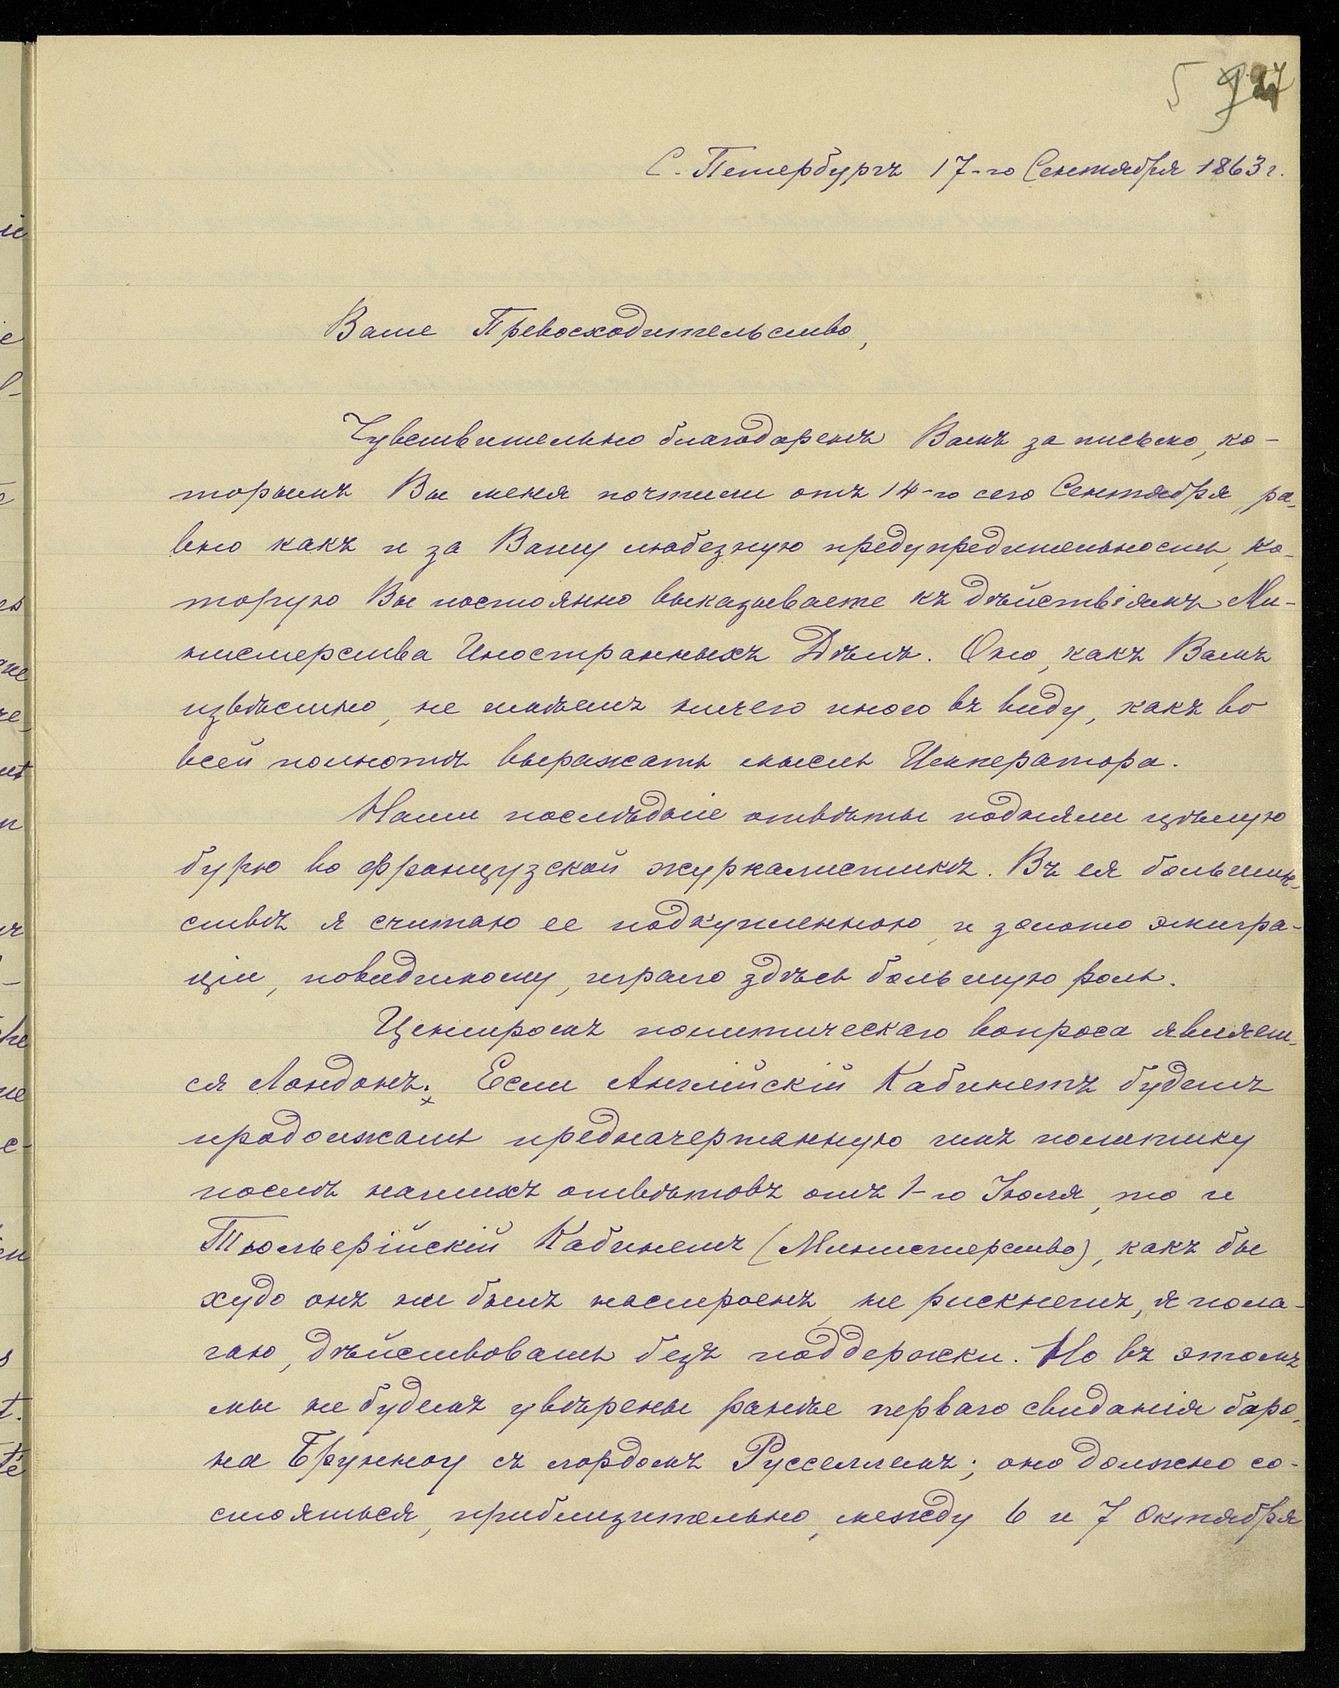 5
С. Петербургъ 17-го Сентября 1863 г.
Ваше Превосходительство,
Чувствительно благодаренъ Вамъ за письмо, ко-
торымъ Вы меня почтили отъ 14-го сего Сентября, ра-
вно какъ и за Вашу любезную предупредительность, ко-
торую Вы постоянно выказываете къ дѣйствіямъ Ми-
нистерства Иностранныхъ Дѣлъ. Оно, какъ Вамъ
извѣстно, не имѣетъ ничего иного въ виду, какъ во
всей полнотѣ выражать мысль Императора.
Наши послѣдніе отвѣты подняли цѣлую
бурю во французской журналистикѣ. Въ ея большин-
ствѣ я считаю ее подкупленною, и золото эмигра-
ціи, повидимому, играло здѣсь большую роль.
Центромъ политическаго вопроса являет-
ся Лондонъ. Если Англійскій Кабинетъ будетъ
продолжать предначертанную имъ политику
послѣ нашихъ отвѣтовъ отъ 1-го Іюля, то и
Тюльерійскій Кабинетъ (Министерство), какъ бы
худо онъ ни былъ настроенъ, не рискнетъ, я пола-
гаю, дѣйствовать безъ поддержки. Но въ этомъ
мы не будемъ увѣрены ранѣе перваго свиданія баро-
на Бруннау съ лордомъ Русселлемъ; оно должно со-
стояться, приблизительно, между 6 и 7 Октября